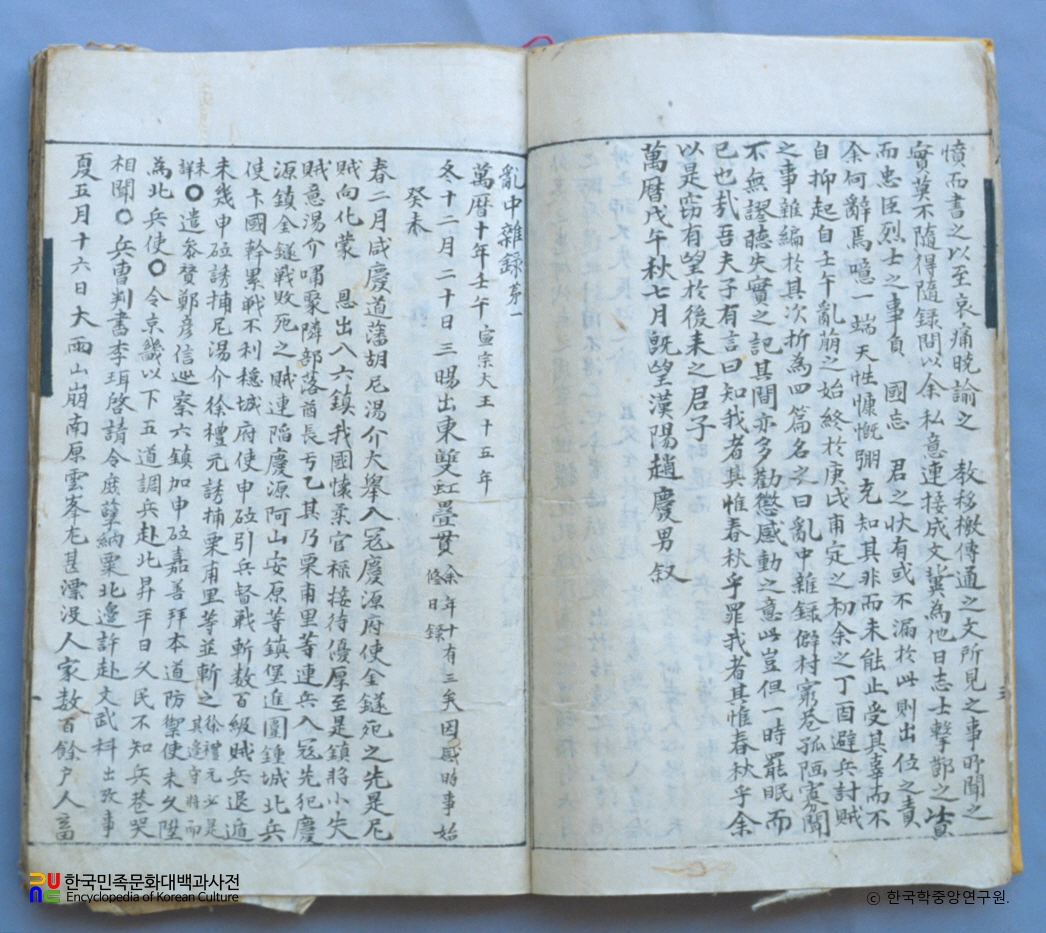 憤而書之以至哀痛曉諭之 教移檄傳通之文所見之事所聞之
實莫不隨得隨錄間以余私意連接成文冀為他日志士擊節之資
而忠臣烈士之事負 國忘 君之狀有或不漏於此則出位之責
余何辭焉噫一端 天性慷慨弸充知其非而未能止受其辜而不
自抑起自壬午亂崩之始終於庚戌甫定之初余之丁酉避兵討賊
之事雜編於其次折為四篇名之曰亂中雜錄僻村窮巷孤陋寡聞
不無謬聽失實之記其間亦多勸懲感動之意此豈但一時罷眠而
已也㢤吾夫子有言曰知我者其惟春秋乎罪我者其惟春秋乎余
以是窃有望於後来之君子
萬曆戊午秋七月旣望漢陽趙慶男叙
亂中雜錄苐一
萬曆十年壬午 宣宗大王十五年
冬十二月二十日三暘出東雙虹疊貫 余年十有三矣因感時事始修日錄
癸未
春二月咸慶道藩胡尼湯介大舉入冦慶源府使金鐩死之先是尼
賊向化蒙 恩出入六鎮我國懷柔官稱接待優厚至是鎮將小失
賊意湯介嘯聚隣部落酋長亐乙其乃栗甫里等連兵入冦先犯慶
源鎮金鐩戰敗死之賊連陷慶源阿山安原等鎮堡進圍鍾城北兵
使卞國幹累戰不利穩城府使申砬引兵督戰斬数百級賊兵退遁
未幾申砬誘捕尼湯介徐禮元誘捕栗甫里等並斬之 徐禮元必是其邊守將而未詳
○遣参贊鄭彦信廵察六鎮加申砬嘉善拜本道防禦使未久陞
為北兵使○令京畿以下五道調兵赴北昇平日久民不知兵巷哭
相聞○兵曹判書李珥啓請令庶孽納粟北邊許赴文武科 出攷事
夏五月十六日大雨山崩南原雲峯尤甚漂没人家数百餘户人畜
한국민족문화대백과사전
Encyclopedia of Korean Culture
© 한국학중앙연구원.